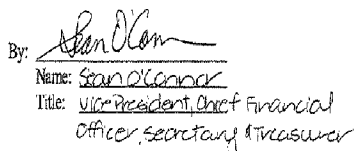 By: Sean O'Conn
Name: Sean O'Connor
Title: Vice President, Chief Financial
Officer, Secretary & Treasurer